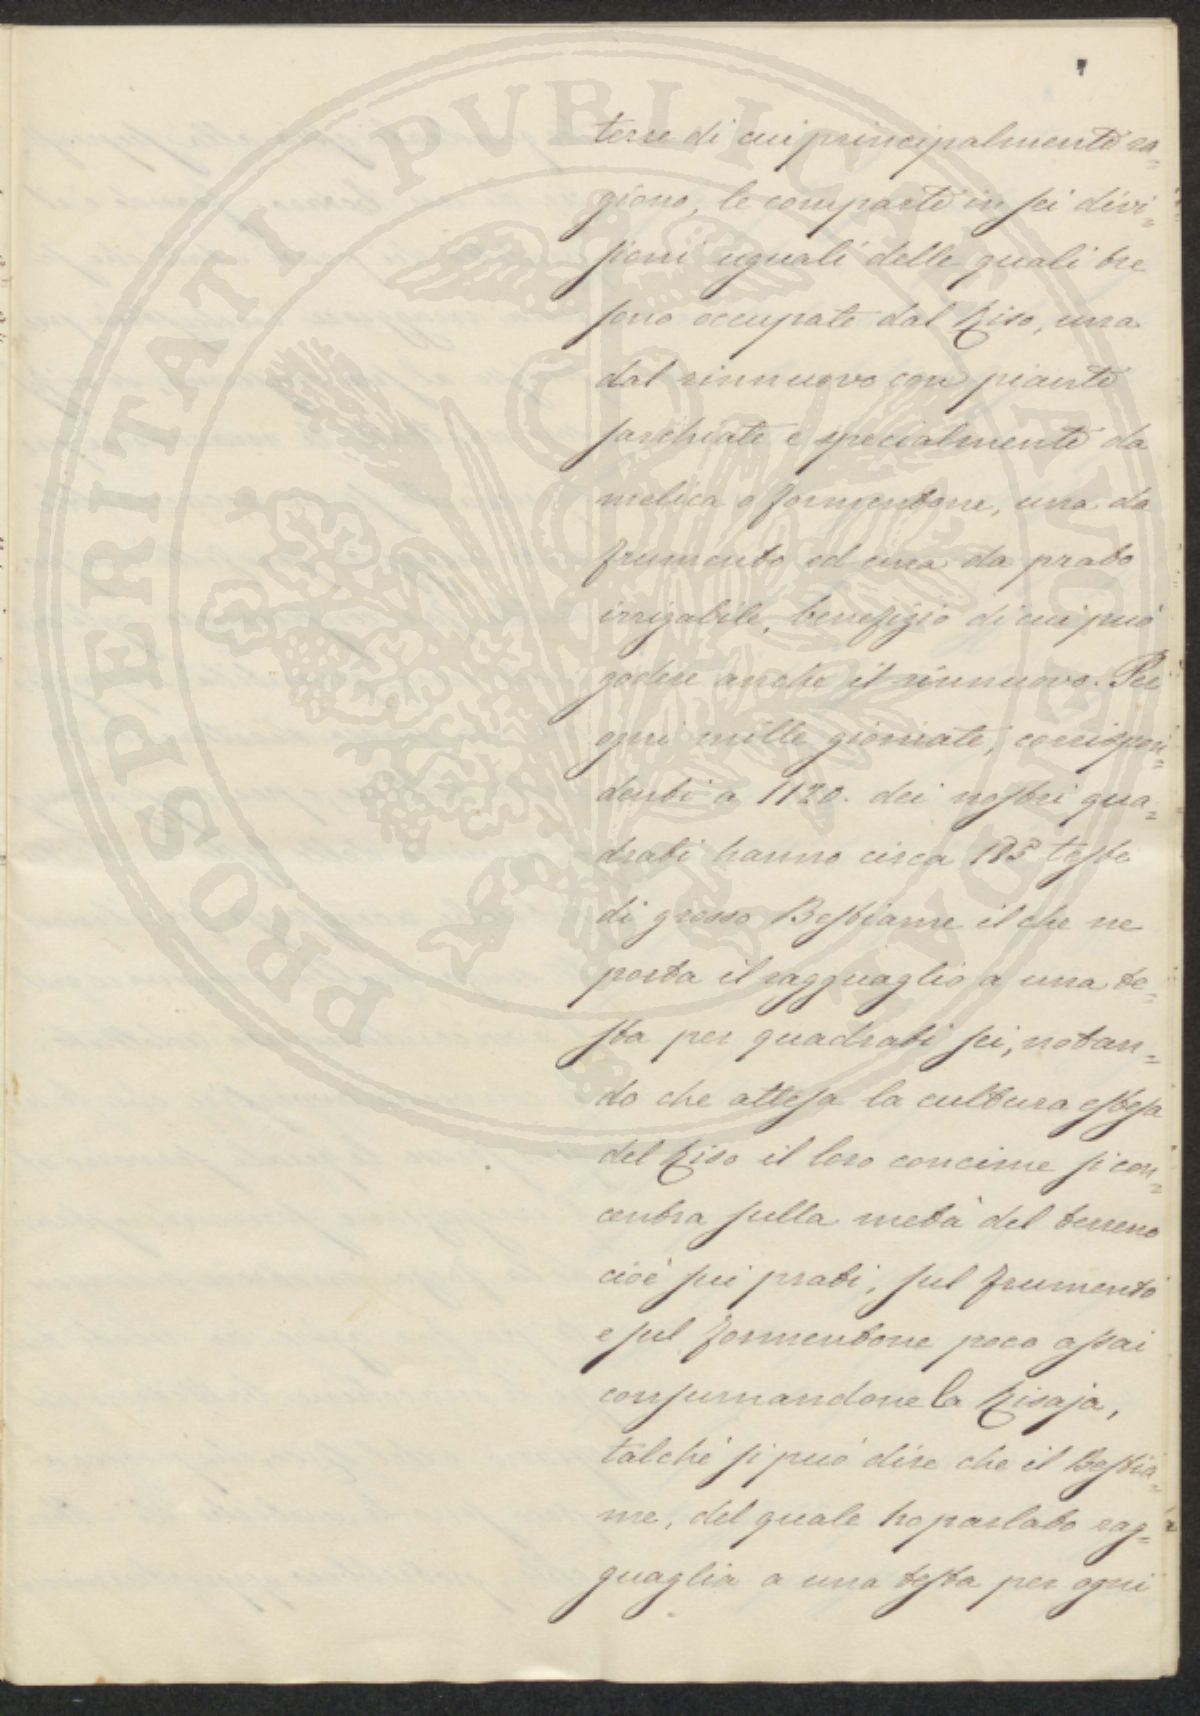 terre di cui principalmente ra=
giono, le comparte in sei divi=
sioni uguali delle quali tre
sono occupate dal Riso, una
dal rinnuovo con piante
sarchiate e specialmente da
melica o formentone, una da
frumento ed una da prato
irrigabile, benefizio di cui può
godere anche il rinnuovo. Per
ogni mille giornate, corrispon=
denti a 1120. dei nostri qua=
drati hanno circa 185 teste
di grosso Bestiame il che ne
porta il ragguaglio a una te=
sta per quadrati sei, notan=
do che attesa la cultura estesa
del Riso il loro concime si con=
centra sulla metà del terreno
cioè sui prati, sul frumento
e sul formentone poco assai
consumandone la Risaja,
talchè si può dire che il Bestia=
me, del quale ho parlato rag=
guaglia a una testa per ogni
PROSPERITATI PVBLICAE AVGENDAE